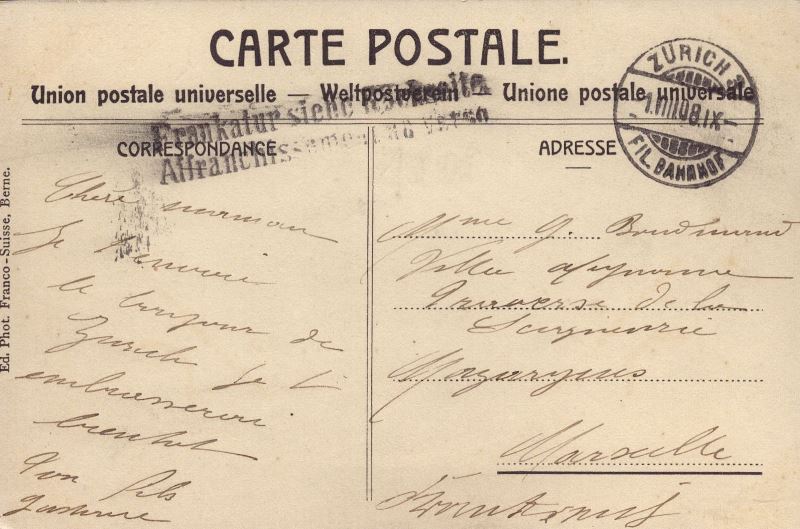 CARTE POSTALE.
Union postale universelle — Weltpostverein — Unione postale universale
Frankatur siehe Rückseite
Affranchissement au verso
ZÜRICH
1.VIII.08.IX
FIL. BAHNHOF
CORRESPONDANCE
ADRESSE
Chère maman
Je t'envoie
le bonjour de
Zurich Je t'
embrasserai
bientôt
Ton fils
Gustave
Mme G.
Villa
Traverse de la
Seigneurie
Mazargues
Marseille
Ed. Phot. Franco-Suisse, Berne.